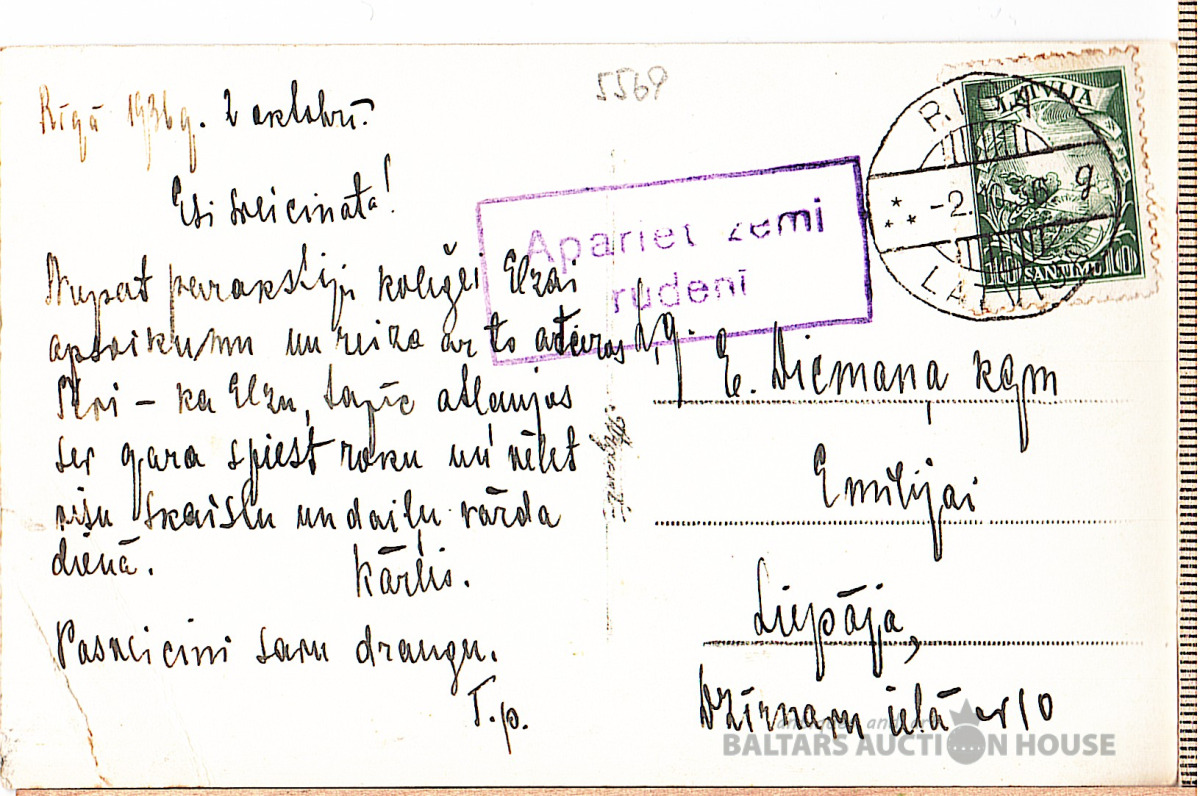 Rīgā 1936g. 2 oktobrī.
5569
Esi sveicināta!
Nupat parakstīju kolēģei Elzai
apsveikumu un reizē ar to atceros
Tevi – ka Elzu, tapīc atļaujos
ser gara spiest roku un vēlēt
visu skaistu un daiļu vārda
dienā.
Kārlis.
Pasveicini savu draugu.
T.p.
Apariet zemi
rudenī
RIGA
-2.
LATVIJA
LATVIJA
10 SANTIMU 10
E. Dicmaņa kgm
Emīlijai
Liepāja,
Dzirnavu ielā nr 10
BALTARS AUCTION HOUSE